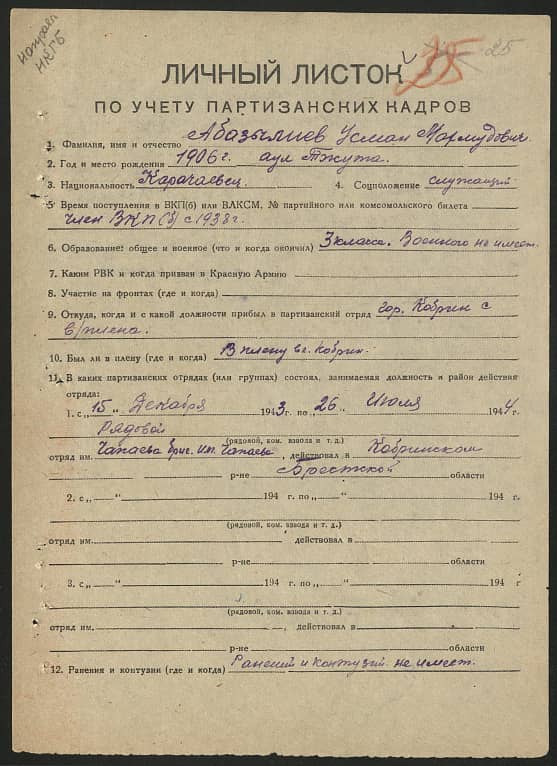 Направл.
НКГБ
25
ЛИЧНЫЙ ЛИСТОК
ПО УЧЕТУ ПАРТИЗАНСКИХ КАДРОВ
1. Фамилия, имя и отчество Абазылиев Усман Мармудович
2. Год и место рождения 1906 г. аул Тжута.
3. Национальность Карачаевец 4. Соцположение служащий
5. Время поступления в ВКП(б) или ВЛКСМ, № партийного или комсомольского билета
член ВКП(б) с 1938 г.
6. Образование: общее и военное (что и когда окончил) 3 класса. Военного не имеет.
7. Каким РВК и когда призван в Красную Армию
8. Участие на фронтах (где и когда)
9. Откуда, когда и с какой должности прибыл в партизанский отряд гор. Кобрин с
в/плена.
10. Был ли в плену (где и когда) В плену в г. Кобрин.
11. В каких партизанских отрядах (или группах) состоял, занимаемая должность и район действия
отряда:
1. с „15„ Декабря 1943 г. по „26„ Июля 1944 г.
Рядовой
(рядовой, ком. взвода и т. д.)
отряд им. Чапаева бриг. им. Чапаева, действовал в Кобринском
р-не Брестской области
2. с „ “ 194 г. по „ “ 194 г.
(рядовой, ком. взвода и т. д.)
отряд им. действовал в
р-не области
3. с „ “ 194 г. по „ “ 194 г
(рядовой, ком. взвода и т. д.)
отряд им. , действовал в
р-не области
12. Ранения и контузии (где и когда) Ранений и контузий не имеет.